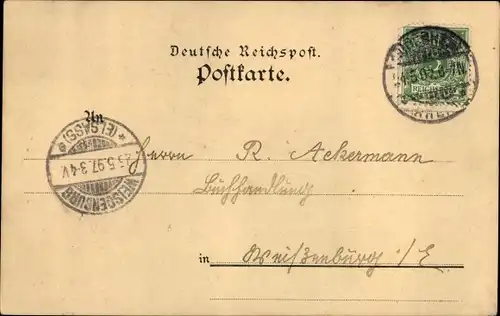 Deutsche Reichspost.
Postkarte.
An
Herrn R. Ackermann
Buchhandlung
in Weißenburg i/E
WEISSENBURG
25.5.97.3-4.V.
* (ELSASS) *